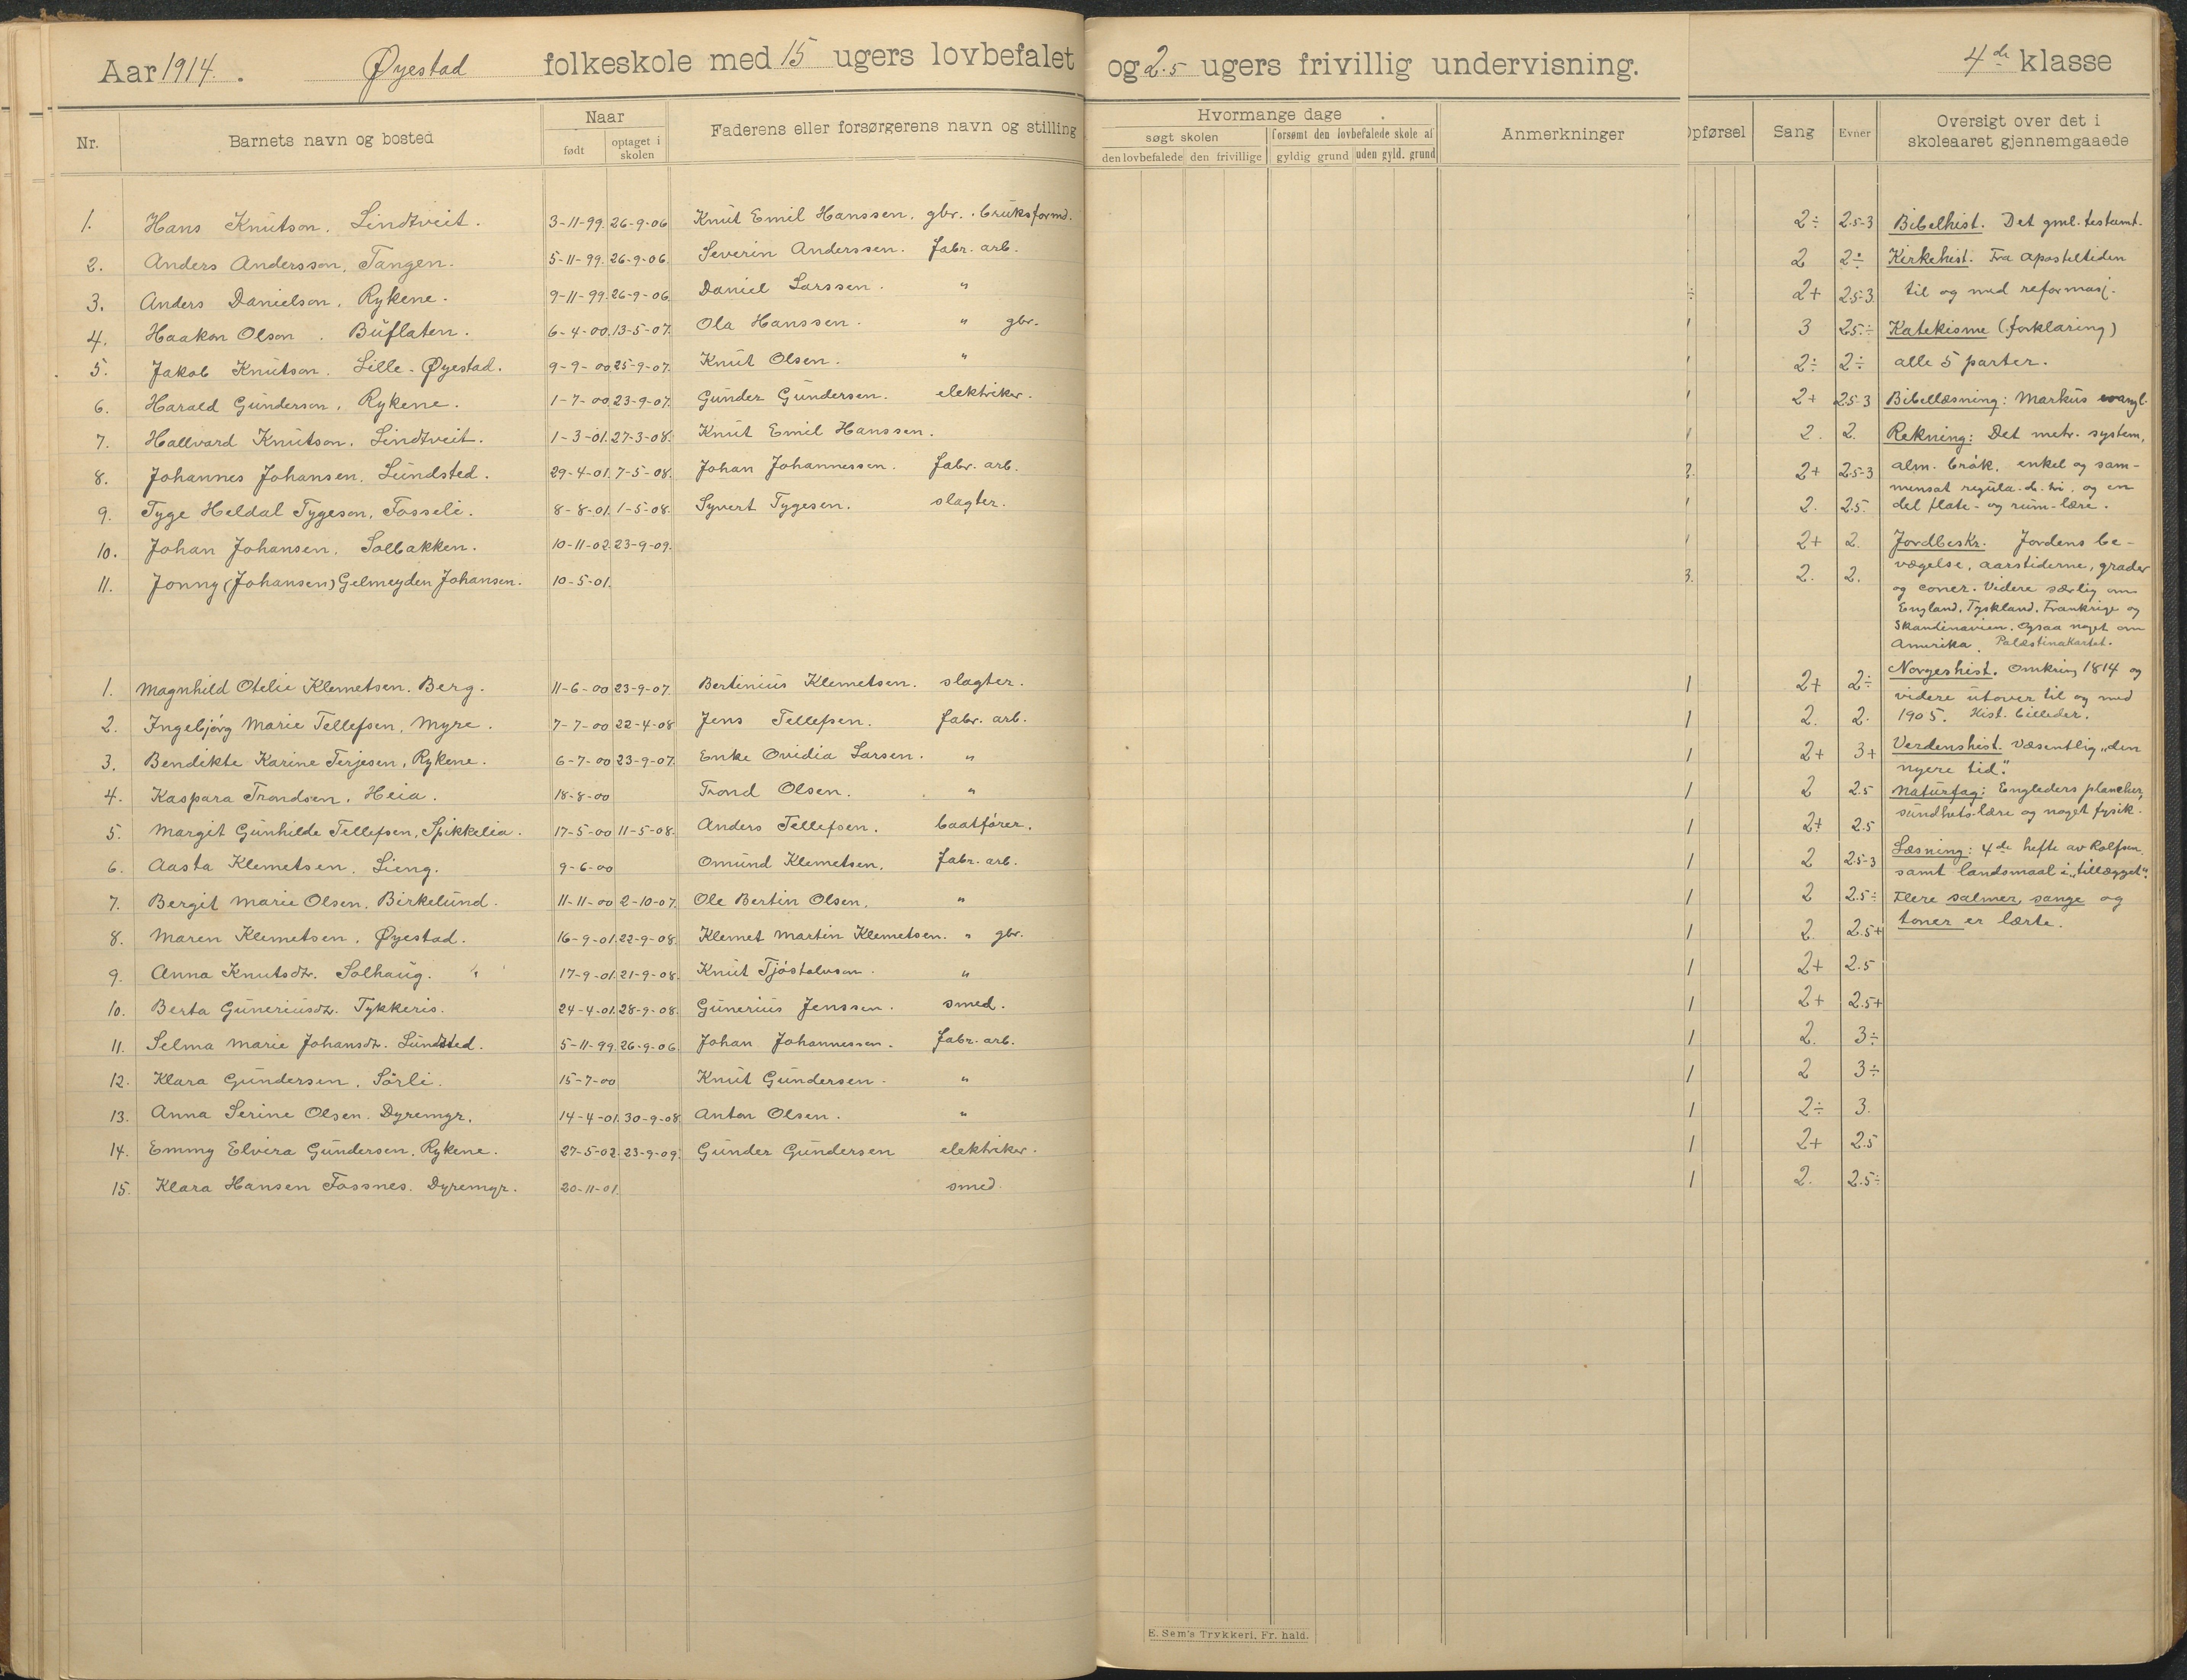 Aar 1914. Øyestad folkeskole med 15 ugers lovbefalet og 2.5 ugers frivillig undervisning. 4de klasse
Nr. Barnets navn og bosted Naar født optaget i skolen Faderens eller forsørgerens navn og stilling
Hvormange dage
søgt skolen forsømt den lovbefalede skole af
den lovbefalede den frivillige gyldig grund uden gyld. grund
Anmerkninger
Opførsel Sang Evner Oversigt over det i skoleaaret gjennemgaaede
1. Hans Knutson. Lindtveit. 3-11-99. 26-9-06 Knut Emil Hanssen. gbr. bruksformd. 2÷ 2.5-3
2. Anders Andersson, Tangen. 5-11-99. 26-9-06. Severin Anderssen. fabr. arb. 2 2÷
3. Anders Danielson, Rykene. 9-11-99. 26-9-06 Daniel Larssen. " ÷ 2+ 2.5-3
4. Haakon Olson. Buflaten. 6-4-00. 13-5-07. Ola Hanssen. " gbr. 1 3 2.5÷
5. Jakob Knutson. Lille-Øyestad. 9-9-00 25-9-07. Knut Olsen. " 1 2÷ 2÷
6. Harald Gunderson, Rykene. 1-7-00. 23-9-07. Gunder Gundersen. elektriker. 1 2+ 2.5-3
7. Hallvard Knutson. Lindtveit. 1-3-01. 27-3-08. Knut Emil Hanssen. 1 2. 2.
8. Johannes Johansen. Lundsted. 29-4-01. 7-5-08. Johan Johannessen. fabr. arb. 2. 2+ 2.5-3
9. Tyge Heldal Tygeson, Fosseli. 8-8-01. 1-5-08. Syvert Tygesen. slagter. 1 2. 2.5.
10. Johan Johansen. Solbakken. 10-11-02. 23-9-09. 1 2+ 2.
11. Jonny (Johansen) Gelmeyden Johansen. 10-5-01. 3. 2. 2.
1. Magnhild Otelie Klemetsen. Berg. 11-6-00 23-9-07. Bertinius Klemetsen. slagter. 1 2+ 2÷
2. Ingebjørg Marie Tellefsen, Myre. 7-7-00 22-4-08 Jens Tellefsen. fabr. arb. 1 2. 2.
3. Bendikte Karine Terjesen, Rykene. 6-7-00 23-9-07. Enke Ovidia Larsen. " 1 2+ 3+
4. Kaspara Trondsen, Heia. 18-8-00 Trond Olsen. " 1 2 2.5
5. Margit Gunhilde Tellefsen, Spikkelia. 17-5-00 11-5-08. Anders Tellefsen. baatfører. 1 2+ 2.5
6. Aasta Klemetsen. Lieng. 9-6-00 Omund Klemetsen. fabr. arb. 1 2 2.5-3
7. Bergit Marie Olsen. Birkelund. 11-11-00 2-10-07. Ole Bertin Olsen. " 1 2 2.5÷
8. Maren Klemetsen, Øyestad. 16-9-01. 22-9-08. Klemet Martin Klemetsen. " gbr. 1 2. 2.5+
9. Anna Knutsdtr. Solhaug. 17-9-01. 21-9-08. Knut Tjøstolvson. " 1 2+ 2.5
10. Berta Guneriusdtr. Tykkeris. 24-4-01. 28-9-08. Gunerius Jenssen. smed. 1 2+ 2.5+
11. Selma Marie Johansdtr. Lundsted. 5-11-99. 26-9-06. Johan Johannessen. fabr. arb. 1 2. 3÷
12. Klara Gundersen. Sørli. 15-7-00 Knut Gundersen. " 1 2 3÷
13. Anna Serine Olsen. Dyremyr. 14-4-01. 30-9-08. Anton Olsen. " 1 2÷ 3.
14. Emmy Elvira Gundersen. Rykene. 27-5-02. 23-9-09. Gunder Gundersen elektriker. 1 2+ 2.5
15. Klara Hansen Fossnes. Dyremyr. 20-11-01. smed. 1 2. 2.5÷
Bibelhist. Det gml. testamt.
Kirkehist. Fra aposteltiden
til og med reformasj.
Katekisme (forklaring)
alle 5 parter.
Bibellæsning: Markus evangl.
Rekning: Det metr. system,
alm. brøk, enkel og sam-
mensat regula-de-tri, og en
del flate- og rum-lære.
Jordbeskr. Jordens be-
vægelse, aarstiderne, grader
og coner. Videre særlig om
England, Tyskland, Frankrige og
Skandinavien. Ogsaa noget om
Amerika. Palæstinakartet.
Norgeshist. Omkring 1814 og
videre utover til og med
1905. Hist. billeder.
Verdenshist. Væsentlig "den
nyere tid".
Naturfag: Engleders plancher,
sundhetslære og noget fysik.
Læsning: 4de hefte av Rolfsen
samt landsmaal i "tillægget".
Flere salmer, sange og
toner er lærte.
E. Sem's Trykkeri, Fr. hald.